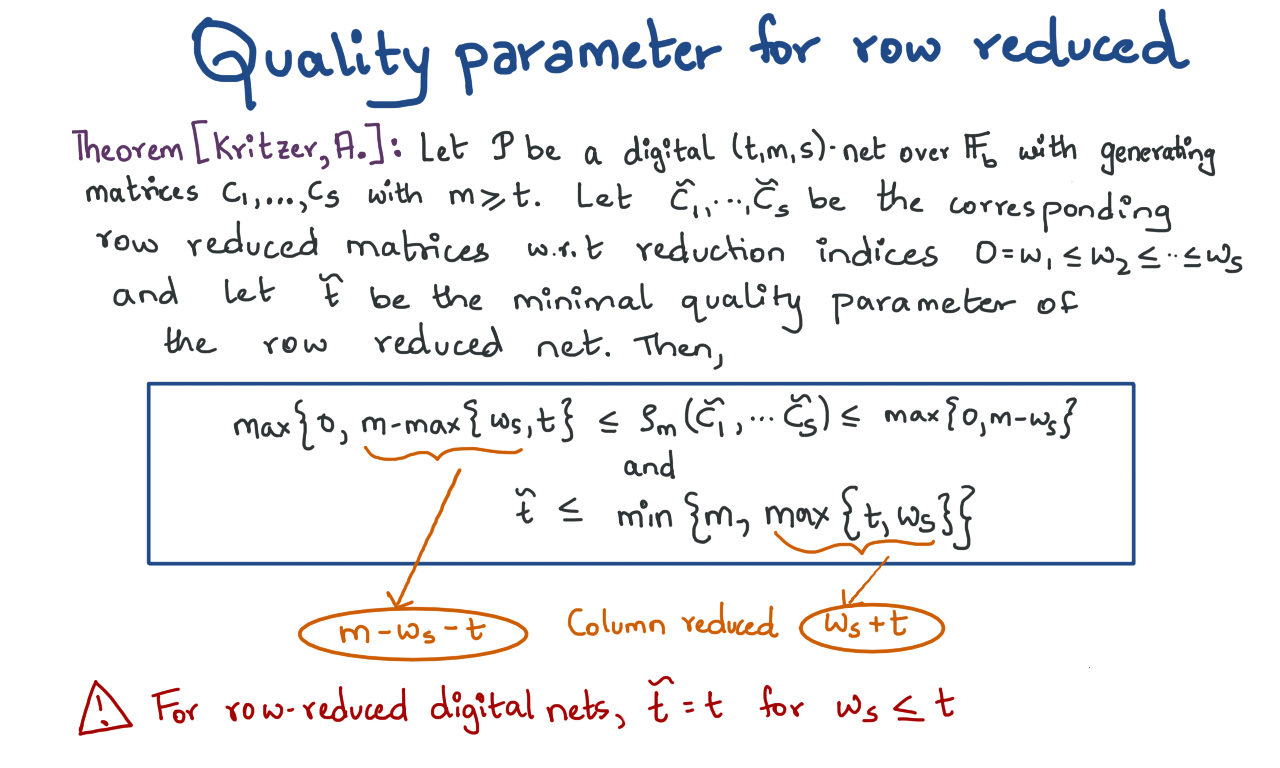 Quality parameter for row reduced
Theorem [Kritzer, A.]: Let P be a digital (t,m,s)-net over 𝔽_b with generating
matrices C₁,...,C_s with m ⩾ t. Let C̆₁,...,C̆_s be the corresponding
row reduced matrices w.r.t reduction indices 0=w₁ ≤ w₂ ≤ ... ≤ w_s
and let t̆ be the minimal quality parameter of
the row reduced net. Then,
max{0, m-max{w_s,t} ≤ ρ_m(C̆₁,... C̆_s) ≤ max{0,m-w_s}
and
t̆ ≤ min {m, max {t, w_s}}
m-w_s-t Column reduced w_s+t
⚠ For row-reduced digital nets, t̆ = t for w_s ≤ t